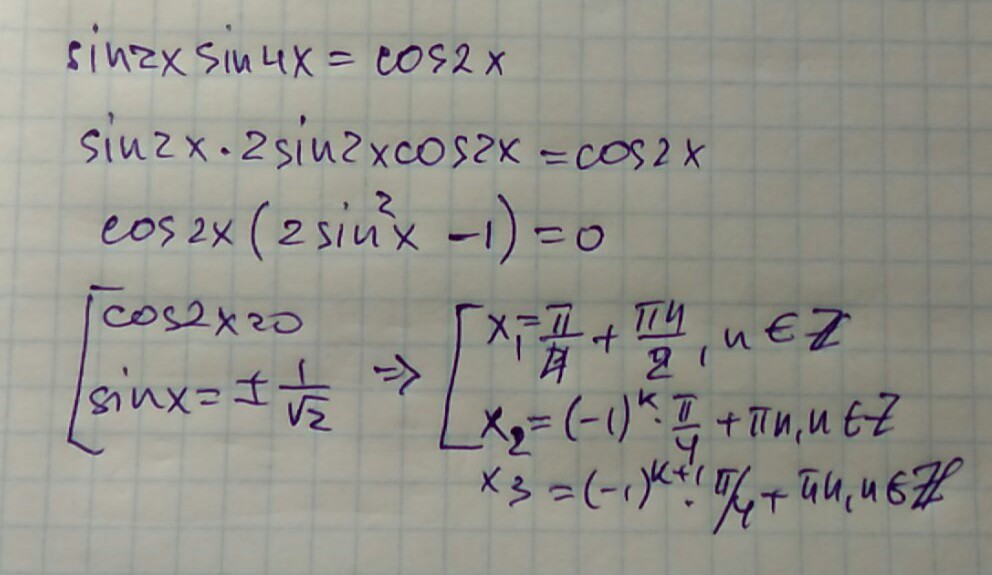 sin2x sin4x = cos2x
sin2x · 2sin2xcos2x = cos2x
cos2x (2sin²x - 1) = 0
[cos2x=0 => [x₁ = π/4 + πn/2, n ∈ Z
sinx = ± 1/√2
x₂ = (-1)ᵏ · π/4 + πn, n ∈ Z
x₃ = (-1)ᵏ⁺¹ · π/4 + πn, n ∈ Z